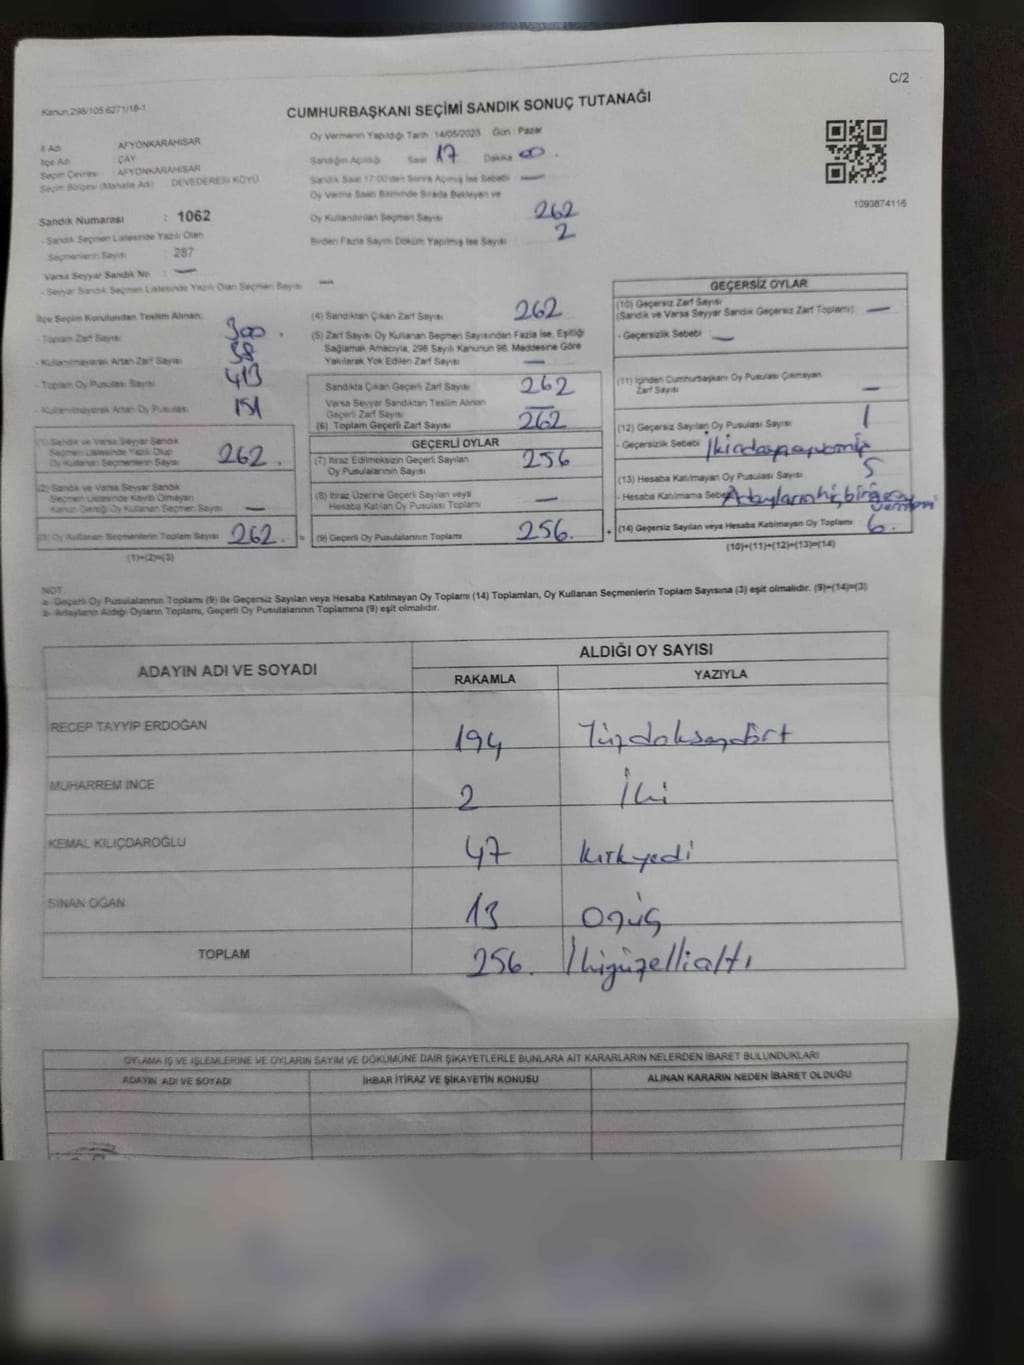 C/2
Kanun.298/105.6271/18-1
CUMHURBAŞKANI SEÇİMİ SANDIK SONUÇ TUTANAĞI
İl Adı : AFYONKARAHİSAR
İlçe Adı : ÇAY
Seçim Çevresi : AFYONKARAHİSAR
Seçim Bölgesi (Mahalle Adı) DEVEDERESİ KÖYÜ
Sandık Numarası : 1062
- Sandık Seçmen Listesinde Yazılı Olan
Seçmenlerin Sayısı : 287
Varsa Seyyar Sandık No —
- Seyyar Sandık Seçmen Listesinde Yazılı Olan Seçmen Sayısı —
Oy Vermenin Yapıldığı Tarih : 14/05/2023 Gün : Pazar
Sandığın Açıldığı Saat 17 Dakika 00 .
Sandık Saat 17:00'den Sonra Açılmış İse Sebebi —
Oy Verme Saati Bitiminde Sırada Bekleyen ve
Oy Kullandırılan Seçmen Sayısı 262
Birden Fazla Sayım Döküm Yapılmış İse Sayısı 2
1093874116
İlçe Seçim Kurulundan Teslim Alınan;
- Toplam Zarf Sayısı 300 .
- Kullanılmayarak Artan Zarf Sayısı 38
- Toplam Oy Pusulası Sayısı 413
- Kullanılmayarak Artan Oy Pusulası 151
(1) Sandık ve Varsa Seyyar Sandık
Seçmen Listesinde Yazılı Olup
Oy Kullanan Seçmenlerin Sayısı 262.
(2) Sandık ve Varsa Seyyar Sandık
Seçmen Listesinde Kayıtlı Olmayan
Kanun Gereği Oy Kullanan Seçmen Sayısı —
(3) Oy Kullanan Seçmenlerin Toplam Sayısı 262. =
(1)+(2)=(3)
(4) Sandıktan Çıkan Zarf Sayısı 262
(5) Zarf Sayısı Oy Kullanan Seçmen Sayısından Fazla İse, Eşitliği
Sağlamak Amacıyla, 298 Sayılı Kanunun 98. Maddesine Göre
Yakılarak Yok Edilen Zarf Sayısı —
Sandıkta Çıkan Geçerli Zarf Sayısı 262
Varsa Seyyar Sandıktan Teslim Alınan
Geçerli Zarf Sayısı —
(6) Toplam Geçerli Zarf Sayısı 262
GEÇERLİ OYLAR
(7) İtiraz Edilmeksizin Geçerli Sayılan
Oy Pusulalarının Sayısı 256
(8) İtiraz Üzerine Geçerli Sayılan veya
Hesaba Katılan Oy Pusulası Toplamı —
(9) Geçerli Oy Pusulalarının Toplamı 256. +
GEÇERSİZ OYLAR
(10) Geçersiz Zarf Sayısı
(Sandık ve Varsa Seyyar Sandık Geçersiz Zarf Toplamı) —
- Geçersizlik Sebebi —
(11) İçinden Cumhurbaşkanı Oy Pusulası Çıkmayan
Zarf Sayısı —
(12) Geçersiz Sayılan Oy Pusulası Sayısı 1
- Geçersizlik Sebebi
(13) Hesaba Katılmayan Oy Pusulası Sayısı 5
- Hesaba Katılmama Sebebi Adayların hiçbirine oy
(14) Geçersiz Sayılan veya Hesaba Katılmayan Oy Toplamı 6.
(10)+(11)+(12)+(13)=(14)
NOT:
a- Geçerli Oy Pusulalarının Toplamı (9) ile Geçersiz Sayılan veya Hesaba Katılmayan Oy Toplamı (14) Toplamları, Oy Kullanan Seçmenlerin Toplam Sayısına (3) eşit olmalıdır. (9)+(14)=(3)
b- Adayların Aldığı Oyların Toplamı, Geçerli Oy Pusulalarının Toplamına (9) eşit olmalıdır.
ADAYIN ADI VE SOYADI ALDIĞI OY SAYISI
RAKAMLA YAZIYLA
RECEP TAYYİP ERDOĞAN 194 Yüzdoksandört
MUHARREM İNCE 2 İki
KEMAL KILIÇDAROĞLU 47 kırkyedi
SİNAN OĞAN 13 Onüç
TOPLAM 256. İkiyüzellialtı
OYLAMA İŞ VE İŞLEMLERİNE VE OYLARIN SAYIM VE DÖKÜMÜNE DAİR ŞİKAYETLERLE BUNLARA AİT KARARLARIN NELERDEN İBARET BULUNDUKLARI
ADAYIN ADI VE SOYADI İHBAR İTİRAZ VE ŞİKAYETİN KONUSU ALINAN KARARIN NEDEN İBARET OLDUĞU